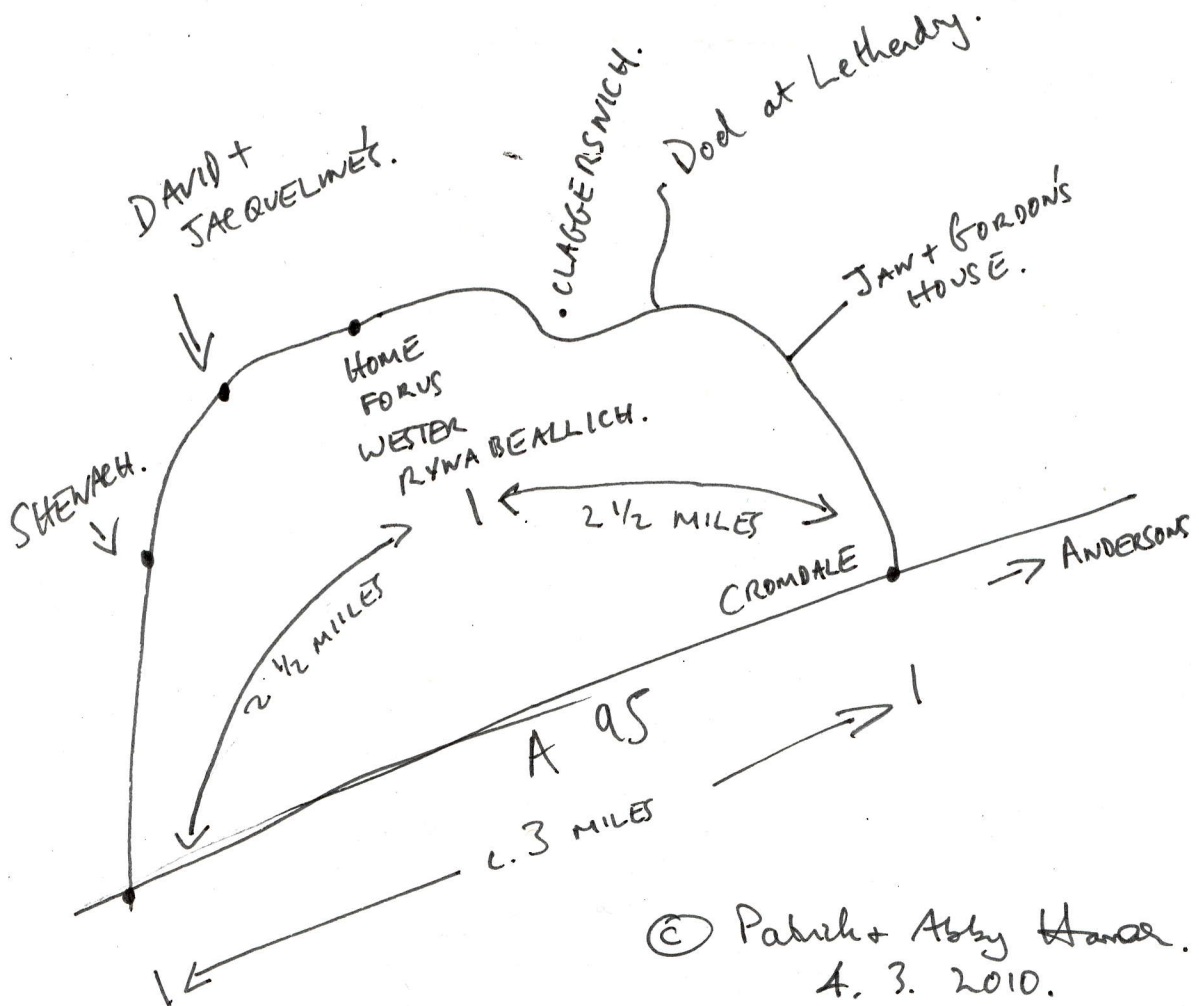 DAVID +
JACQUELINE'S.
CLAGGERSNICH.
Dod at Lethendry.
JAW + GORDON'S
HOUSE.
SHEWACH.
HOME
FOR US
WESTER
RYNABEALLICH.
2 1/2 MILES
2 1/2 MIILES
CROMDALE
ANDERSONS
A 95
c. 3 MILES
© Patrick + Abby
4. 3. 2010.